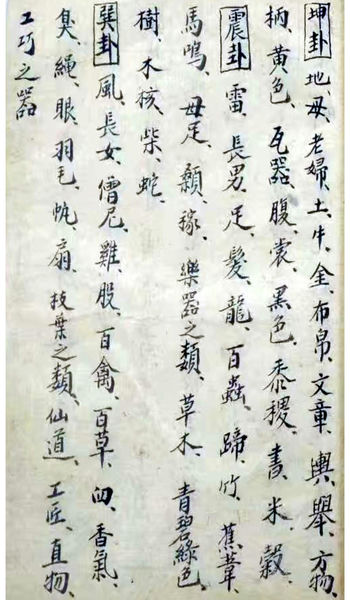 坤卦 地、母、老婦、土、牛、金、布帛、文章、輿、舉、方物、
柄、黄色、瓦器、腹、裳、黑色、黍稷、書、米、穀、
震卦 雷、長男、足、髮、龍、百蟲、蹄、竹、蕉葦、
馬鳴、母足、顙、稼、樂器之類、草木、青碧綠色、
樹、木核、柴、蛇、
巽卦 風、長女、僧尼、雞、股、百禽、百草、臼、香氣、
臭、繩、眼、羽毛、帆、扇、技葉之類、仙道、工匠、直物、
工巧之器